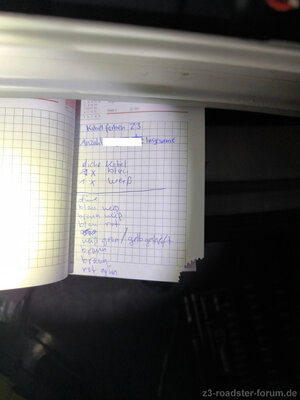 Kabel farben Z3
Anzahl
dicke Kabel
2 x blau
1 x weiß
dünne
blau weiß
braun weiß
blau rot
weiß grün / gelb
braun
braun
rot grün
z3-roadster-forum.de